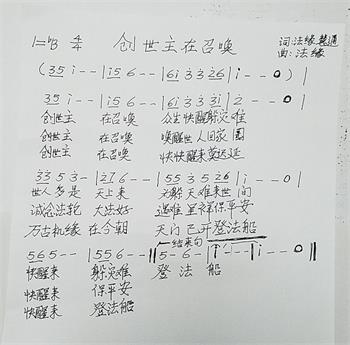 1=♭B 4/4 创世主在召唤 词:法缘
曲:法缘
(35 i - - | i5 6 - - | 6i 3 3 26 | i - - 0 ) |
35 i - - | i5 6 - - | 6i 3 3 3i | 2 - - 0 |
创世主 在召唤 众生快醒躲灾难
创世主 在召唤 唤醒世人回家园
创世主 在召唤 快快醒来莫迟延
33 5 3 - | 276 - - | 55 3 5 26 | i - - 0 |
世人多是 天上来 为躲天难来世间
诚念法轮 大法好 遇难呈祥保平安
万古机缘 在今朝 天门已开登法船
结束句
565 - - | 556 - - || 5 - 6 - | i - - - | i - - 0 ||
快醒来 躲灾难 登法船
快醒来 保平安
快醒来 登法船